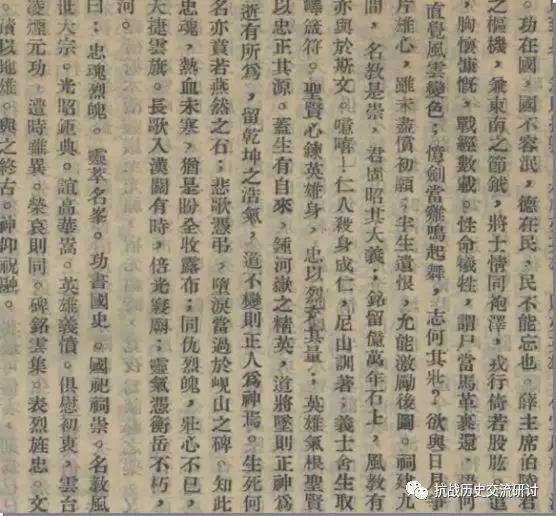 功在國，國不容泯，德在民，民不能忘也。薛主席伯陵君
之樞機，兼東南之節鉞，將士情同袍澤，戎行倚若股肱。也
，胸懷慷慨，戰經數載。性命犧牲，謂尸當馬革裹還，何
直覺風雲變色；憶劍當雞鳴起舞，志何其壯？欲與日月爭
片雄心，雖未盡償初願；半生遺恨，允能激勵後圖。祠建九
間，名教是崇，君固昭其大義；銘留億萬年石上，風教有
亦與於斯文。噫嘻！仁人殺身成仁，尼山訓著；義士舍生取
嶧箴符。聖賢心鍊英雄身，忠以烈充其量；英雄氣根聖賢
以忠正其源。蓋生有自來，鍾河嶽之精英，道將墜則正神爲
逝有所爲，留乾坤之浩氣，道不變則正人爲神焉。生死何
名亦賁若燕然之石；悲歌憑弔，墮淚當過於峴山之碑。知此
忠魂，熱血未寒，猶是盼全收露布；同仇烈魄，壯心不已，
大捷雲旗。長歌入漢關有時，倍光襄廟；靈氣憑衡岳不朽，
河。
曰：忠魂烈魄。靈萃名峯。功書國史。國祀祠崇。名教風
世大宗。光昭鉅典。誼高華嵩。英雄義憤。俱慰初衷，雲台
凌煙元功，遭時雖異。榮哀則同。碑銘雲集。表烈旌忠。文
藉以地雄。與之終古。神仰祝融。
抗战历史交流研讨